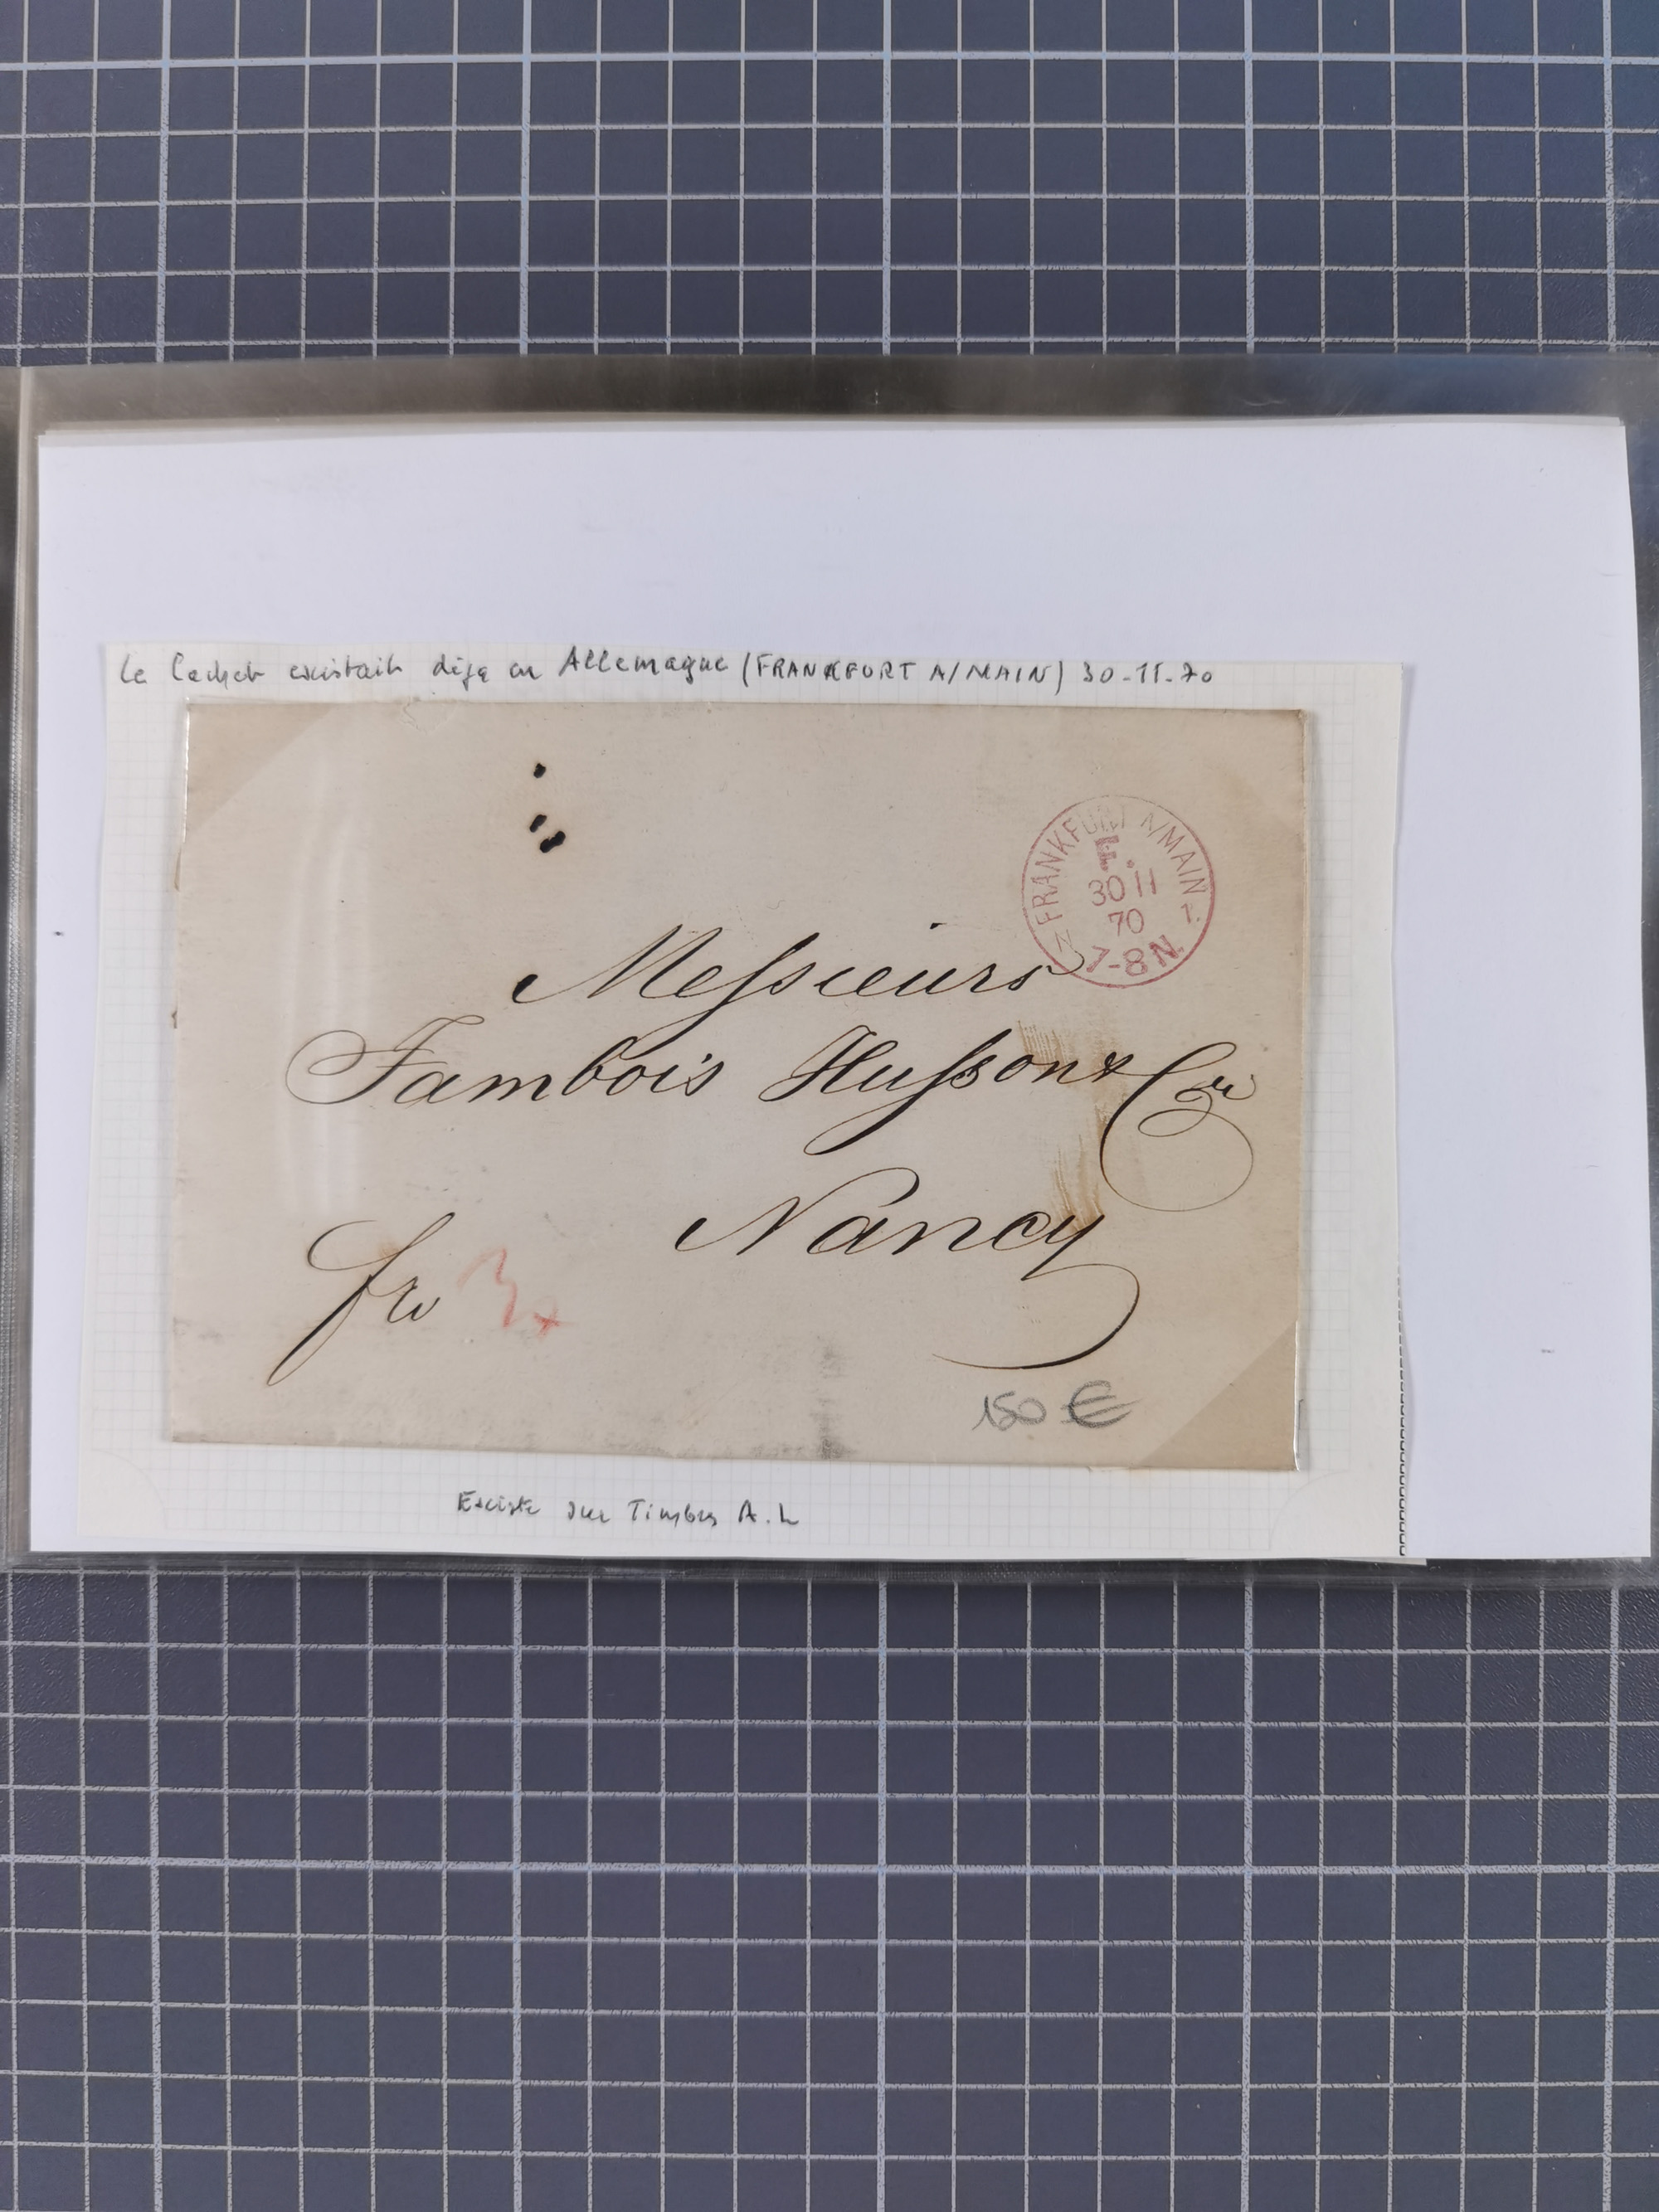 Le Cachet existait déja en Allemagne (FRANKFURT A/MAIN) 30-11-70
FRANKFURT A/MAIN
30 11
70
7-8N.
Messieurs
Fambois Husson & Cie
Nancy
fco 3
150 €
Existe sur Timbres A.L